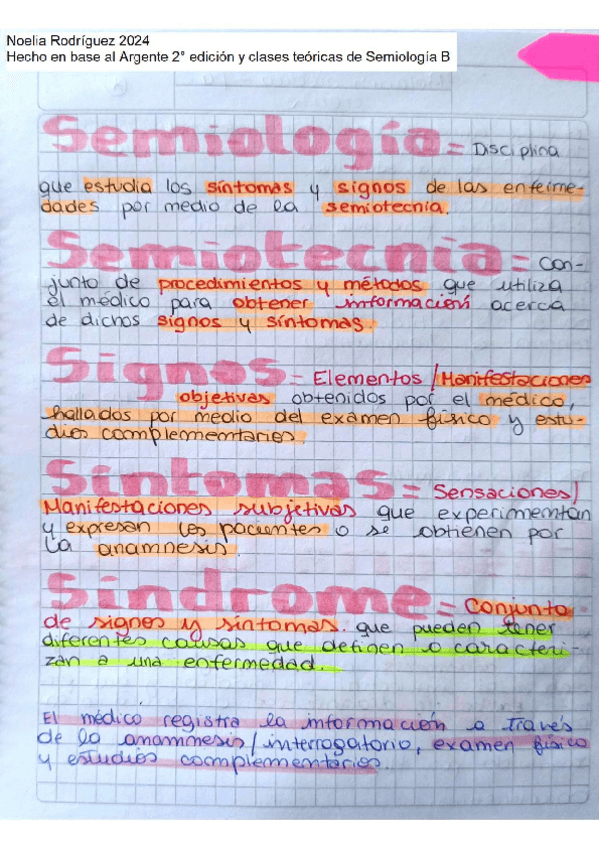 Noelia Rodríguez 2024
Hecho en base al Argente 2° edición y clases teóricas de Semiología B
Semiología = Disciplina
que estudia los síntomas y signos de las enferme-
dades por medio de la semiotecnia.
Semiotecnia = Con-
junto de procedimientos y métodos que utiliza
el médico para obtener información acerca
de dichos signos y síntomas.
Signos = Elementos / Manifestaciones
objetivas obtenidos por el médico,
hallados por medio del exámen físico y estu-
dios complementarios.
Síntomas = Sensaciones/
Manifestaciones subjetivas que experimentan
y expresan los pacientes o se obtienen por
la anamnesis.
Síndrome = Conjunto
de signos y síntomas. que pueden tener
diferentes causas que definen o caracteri-
zan a una enfermedad.
El médico registra la información a través
de la anamnesis/interrogatorio, examen físico
y estudios complementarios.